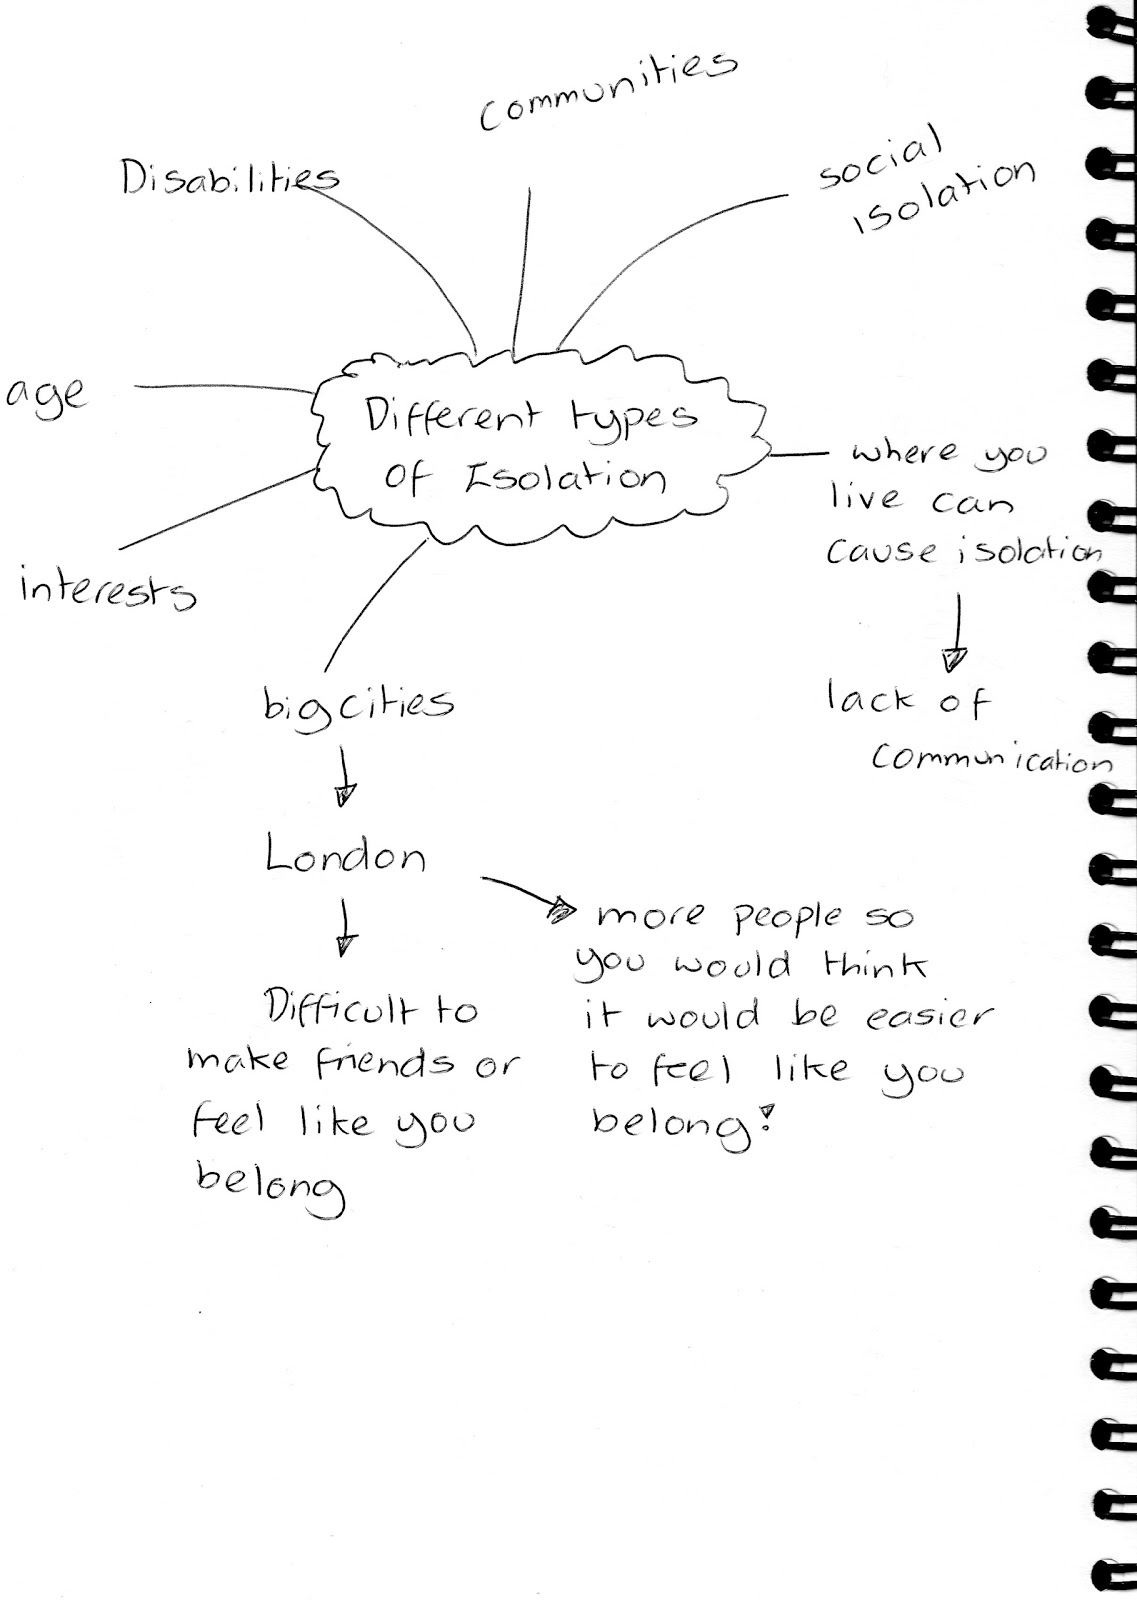 communities
Disabilities
social
isolation
age
Different types
of Isolation
where you
live can
cause isolation
interests
lack of
communication
big cities
London
more people so
you would think
it would be easier
to feel like you
belong!
Difficult to
make friends or
feel like you
belong